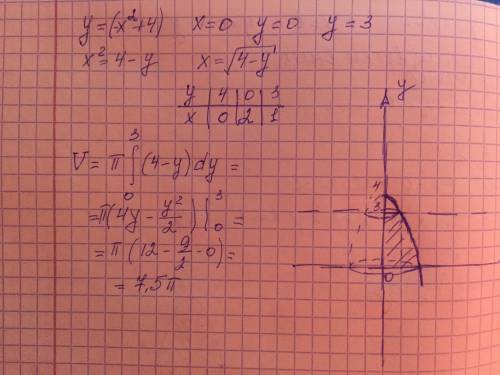 y=(-x²+4) x=0 y=0 y=3
x²=4-y x=√4-y
y | 4 | 0 | 3
x | 0 | 2 | 1
V= π ∫₀³ (4-y)dy =
=π(4y - y²/2) |₀³ =
=π (12 - 9/2 - 0)=
= 7,5π
y
4
3
0